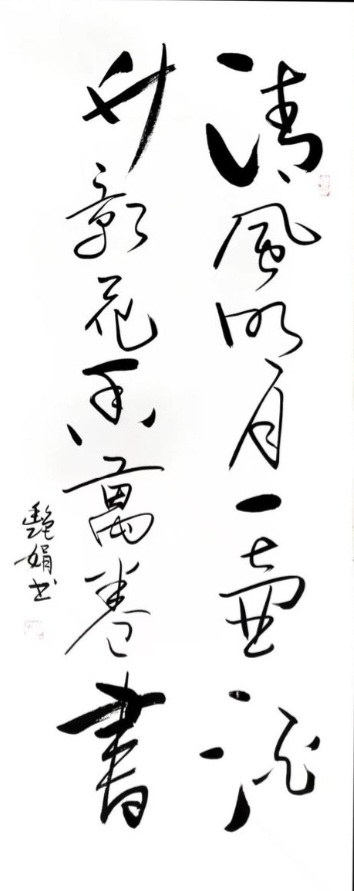 清風明月一壺酒
竹影花香萬卷書
艷娟书